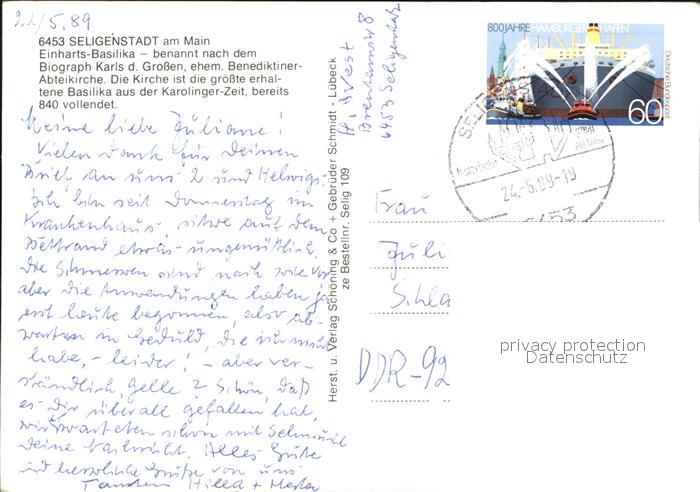 22/5.89
6453 SELIGENSTADT am Main
Einharts-Basilika – benannt nach dem
Biograph Karls d. Großen, ehem. Benediktiner-
Abteikirche. Die Kirche ist die größte erhal-
tene Basilika aus der Karolinger-Zeit, bereits
840 vollendet.
Meine liebe Juliane!
Vielen Dank für Deinen
Brief an uns 2 und Helwigs.
Ich bin seit Donnerstag im
Krankenhaus, sitze auf dem
Bettrand etwas ungemütlich.
Die Schmerzen sind nach wie vor
aber die Anwendungen haben ja
erst heute begonnen, also ab-
warten in Geduld, die ich nicht
habe, - leider! - aber ver-
ständlich, Gelle? Schön, daß
es Dir überall gefallen hat,
wir warteten schon mit Sehnsucht
Deine Nachricht. Alles Gute
und herzliche Grüße von uns
Hilla +
Herst. u. Verlag Schöning & Co + Gebrüder Schmidt - Lübeck
ze Bestellnr. Selig 109
6453 Seligenstadt
800 JAHRE HAMBURGER HAFEN
Deutsche Bundespost
60
24.-5.89-19
6453
Frau
Juli
Schla
DDR-92
privacy protection
Datenschutz